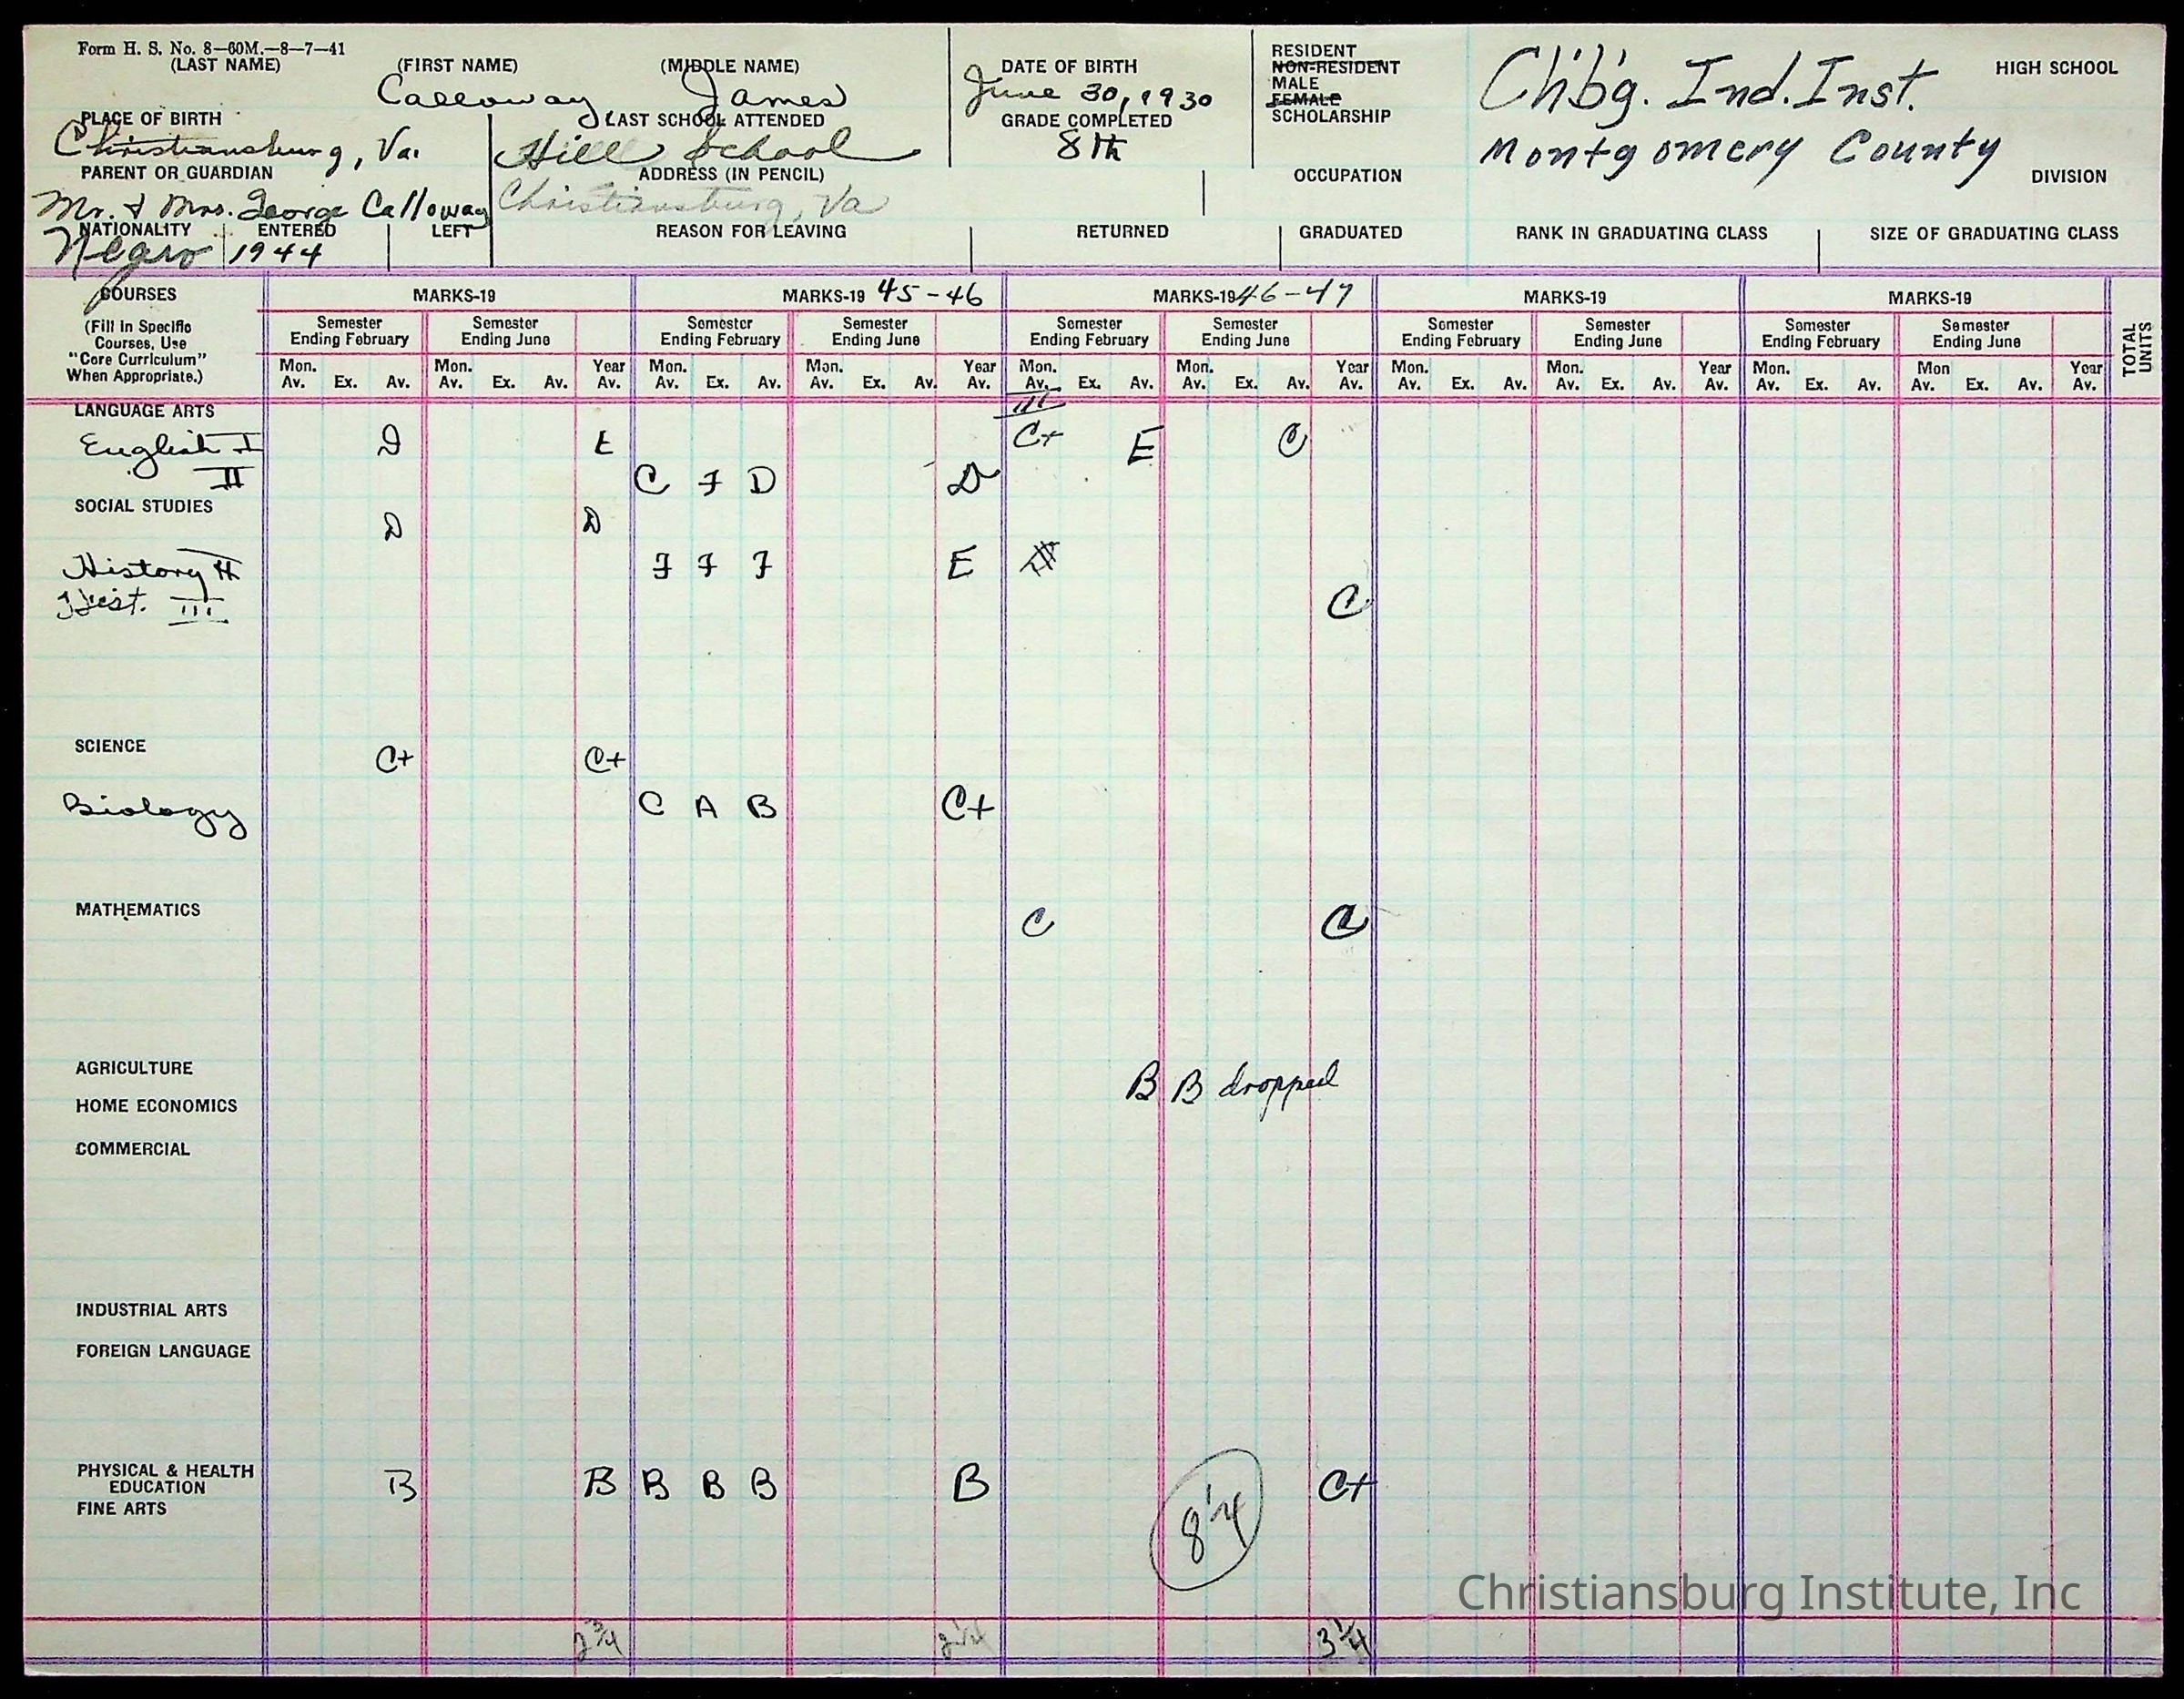 Form H. S. No. 8—60M.—8—7—41
(LAST NAME) (FIRST NAME) (MIDDLE NAME) DATE OF BIRTH
Calloway, James June 30, 1930
RESIDENT
NON-RESIDENT
MALE
FEMALE
SCHOLARSHIP
Ch'b'g. Ind. Inst. HIGH SCHOOL
PLACE OF BIRTH LAST SCHOOL ATTENDED GRADE COMPLETED
Christiansburg, Va. Hill School 8th
Montgomery County DIVISION
PARENT OR GUARDIAN ADDRESS (IN PENCIL) OCCUPATION
Mr. & Mrs. George Calloway Christiansburg, Va
NATIONALITY ENTERED LEFT REASON FOR LEAVING RETURNED GRADUATED RANK IN GRADUATING CLASS SIZE OF GRADUATING CLASS
Negro 1944
COURSES MARKS-19 MARKS-19 45-46 MARKS-19 46-47 MARKS-19 MARKS-19
(Fill in Specific
Courses, Use
"Core Curriculum"
When Appropriate.)
Semester Ending February Semester Ending June Semester Ending February Semester Ending June Semester Ending February Semester Ending June Semester Ending February Semester Ending June Semester Ending February Semester Ending June
Mon. Av. Ex. Av. Mon. Av. Ex. Av. Year Av. Mon. Av. Ex. Av. Mon. Av. Ex. Av. Year Av. Mon. Av. Ex. Av. Mon. Av. Ex. Av. Year Av. Mon. Av. Ex. Av. Mon. Av. Ex. Av. Year Av. Mon. Av. Ex. Av. Mon Av. Ex. Av. Year Av.
TOTAL UNITS
LANGUAGE ARTS III
English I D E C+ E C
II C F D D
SOCIAL STUDIES
D D
History II F F F E
Hist. III C
SCIENCE
C+ C+
Biology C A B C+
MATHEMATICS
C C
AGRICULTURE
B B dropped
HOME ECONOMICS
COMMERCIAL
INDUSTRIAL ARTS
FOREIGN LANGUAGE
PHYSICAL & HEALTH
EDUCATION
B B B B B B C+
FINE ARTS
8 1/4
Christiansburg Institute, Inc
2 3/4 2 1/4 3 1/4